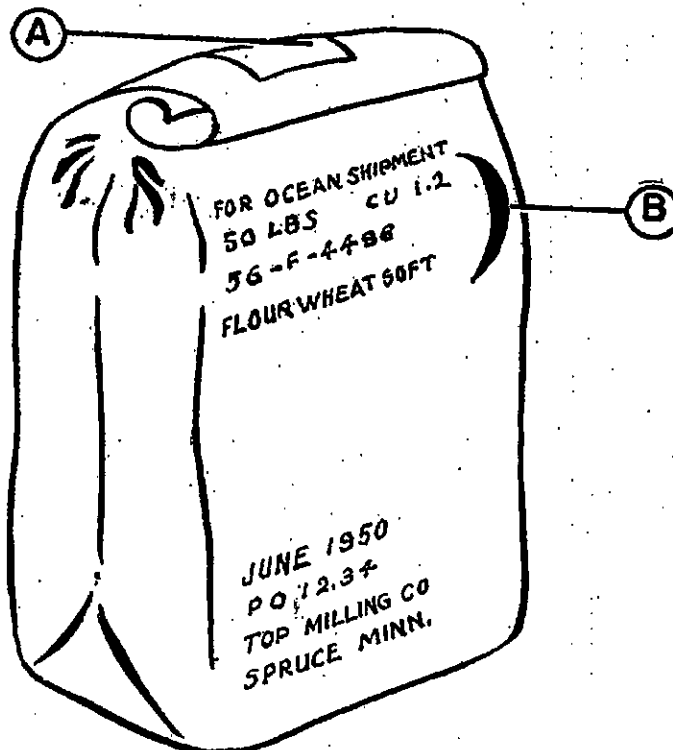 A
B
FOR OCEAN SHIPMENT
50 LBS CU 1.2
56-F-4486
FLOUR WHEAT SOFT
JUNE 1950
PO 1234
TOP MILLING CO
SPRUCE MINN.